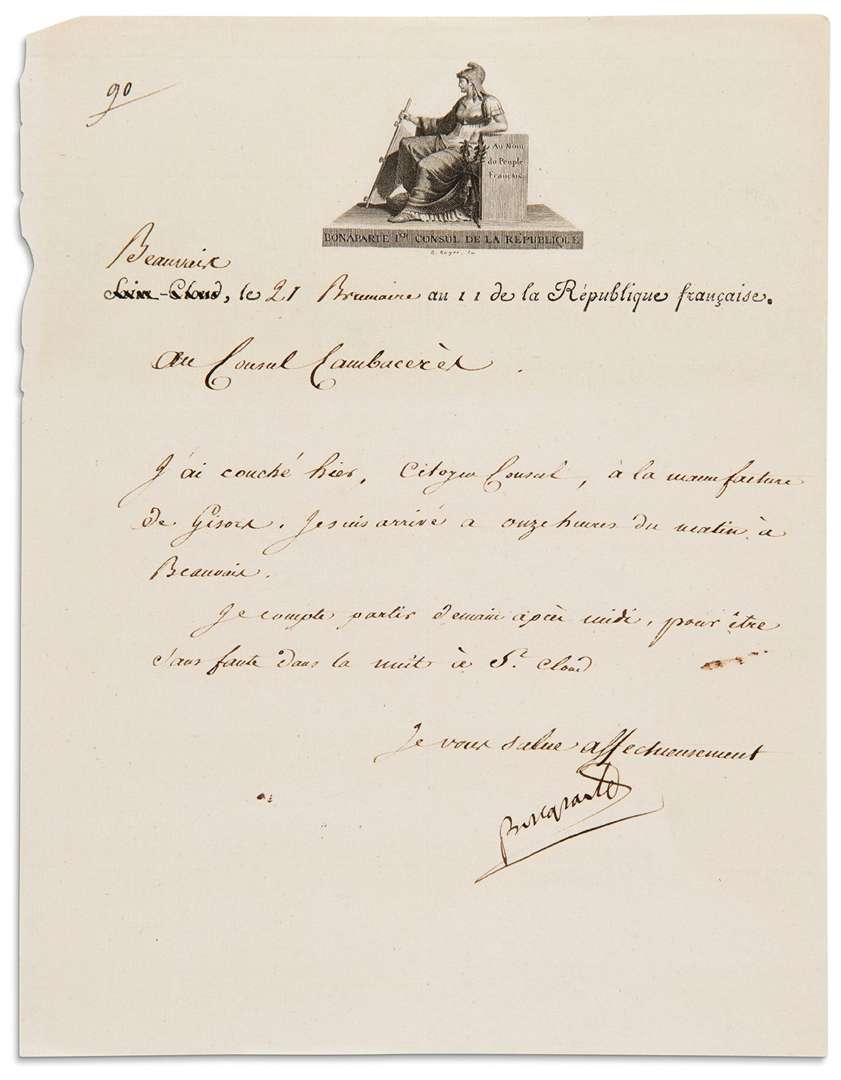 90
Au Nom
du Peuple
Français.
BONAPARTE 1er CONSUL DE LA RÉPUBLIQUE
Beauvais
Saint-Cloud, le 21 Brumaire an 11 de la République française.
Au Consul Cambacérès.
J'ai couché hier, Citoyen Consul, à la manufacture
de Gisors. Je suis arrivé a onze heures du matin a
Beauvais.
Je compte partir demain après midi, pour être
sans faute dans la nuit à St. Cloud
Je vous salue affectueusement
Bonaparte